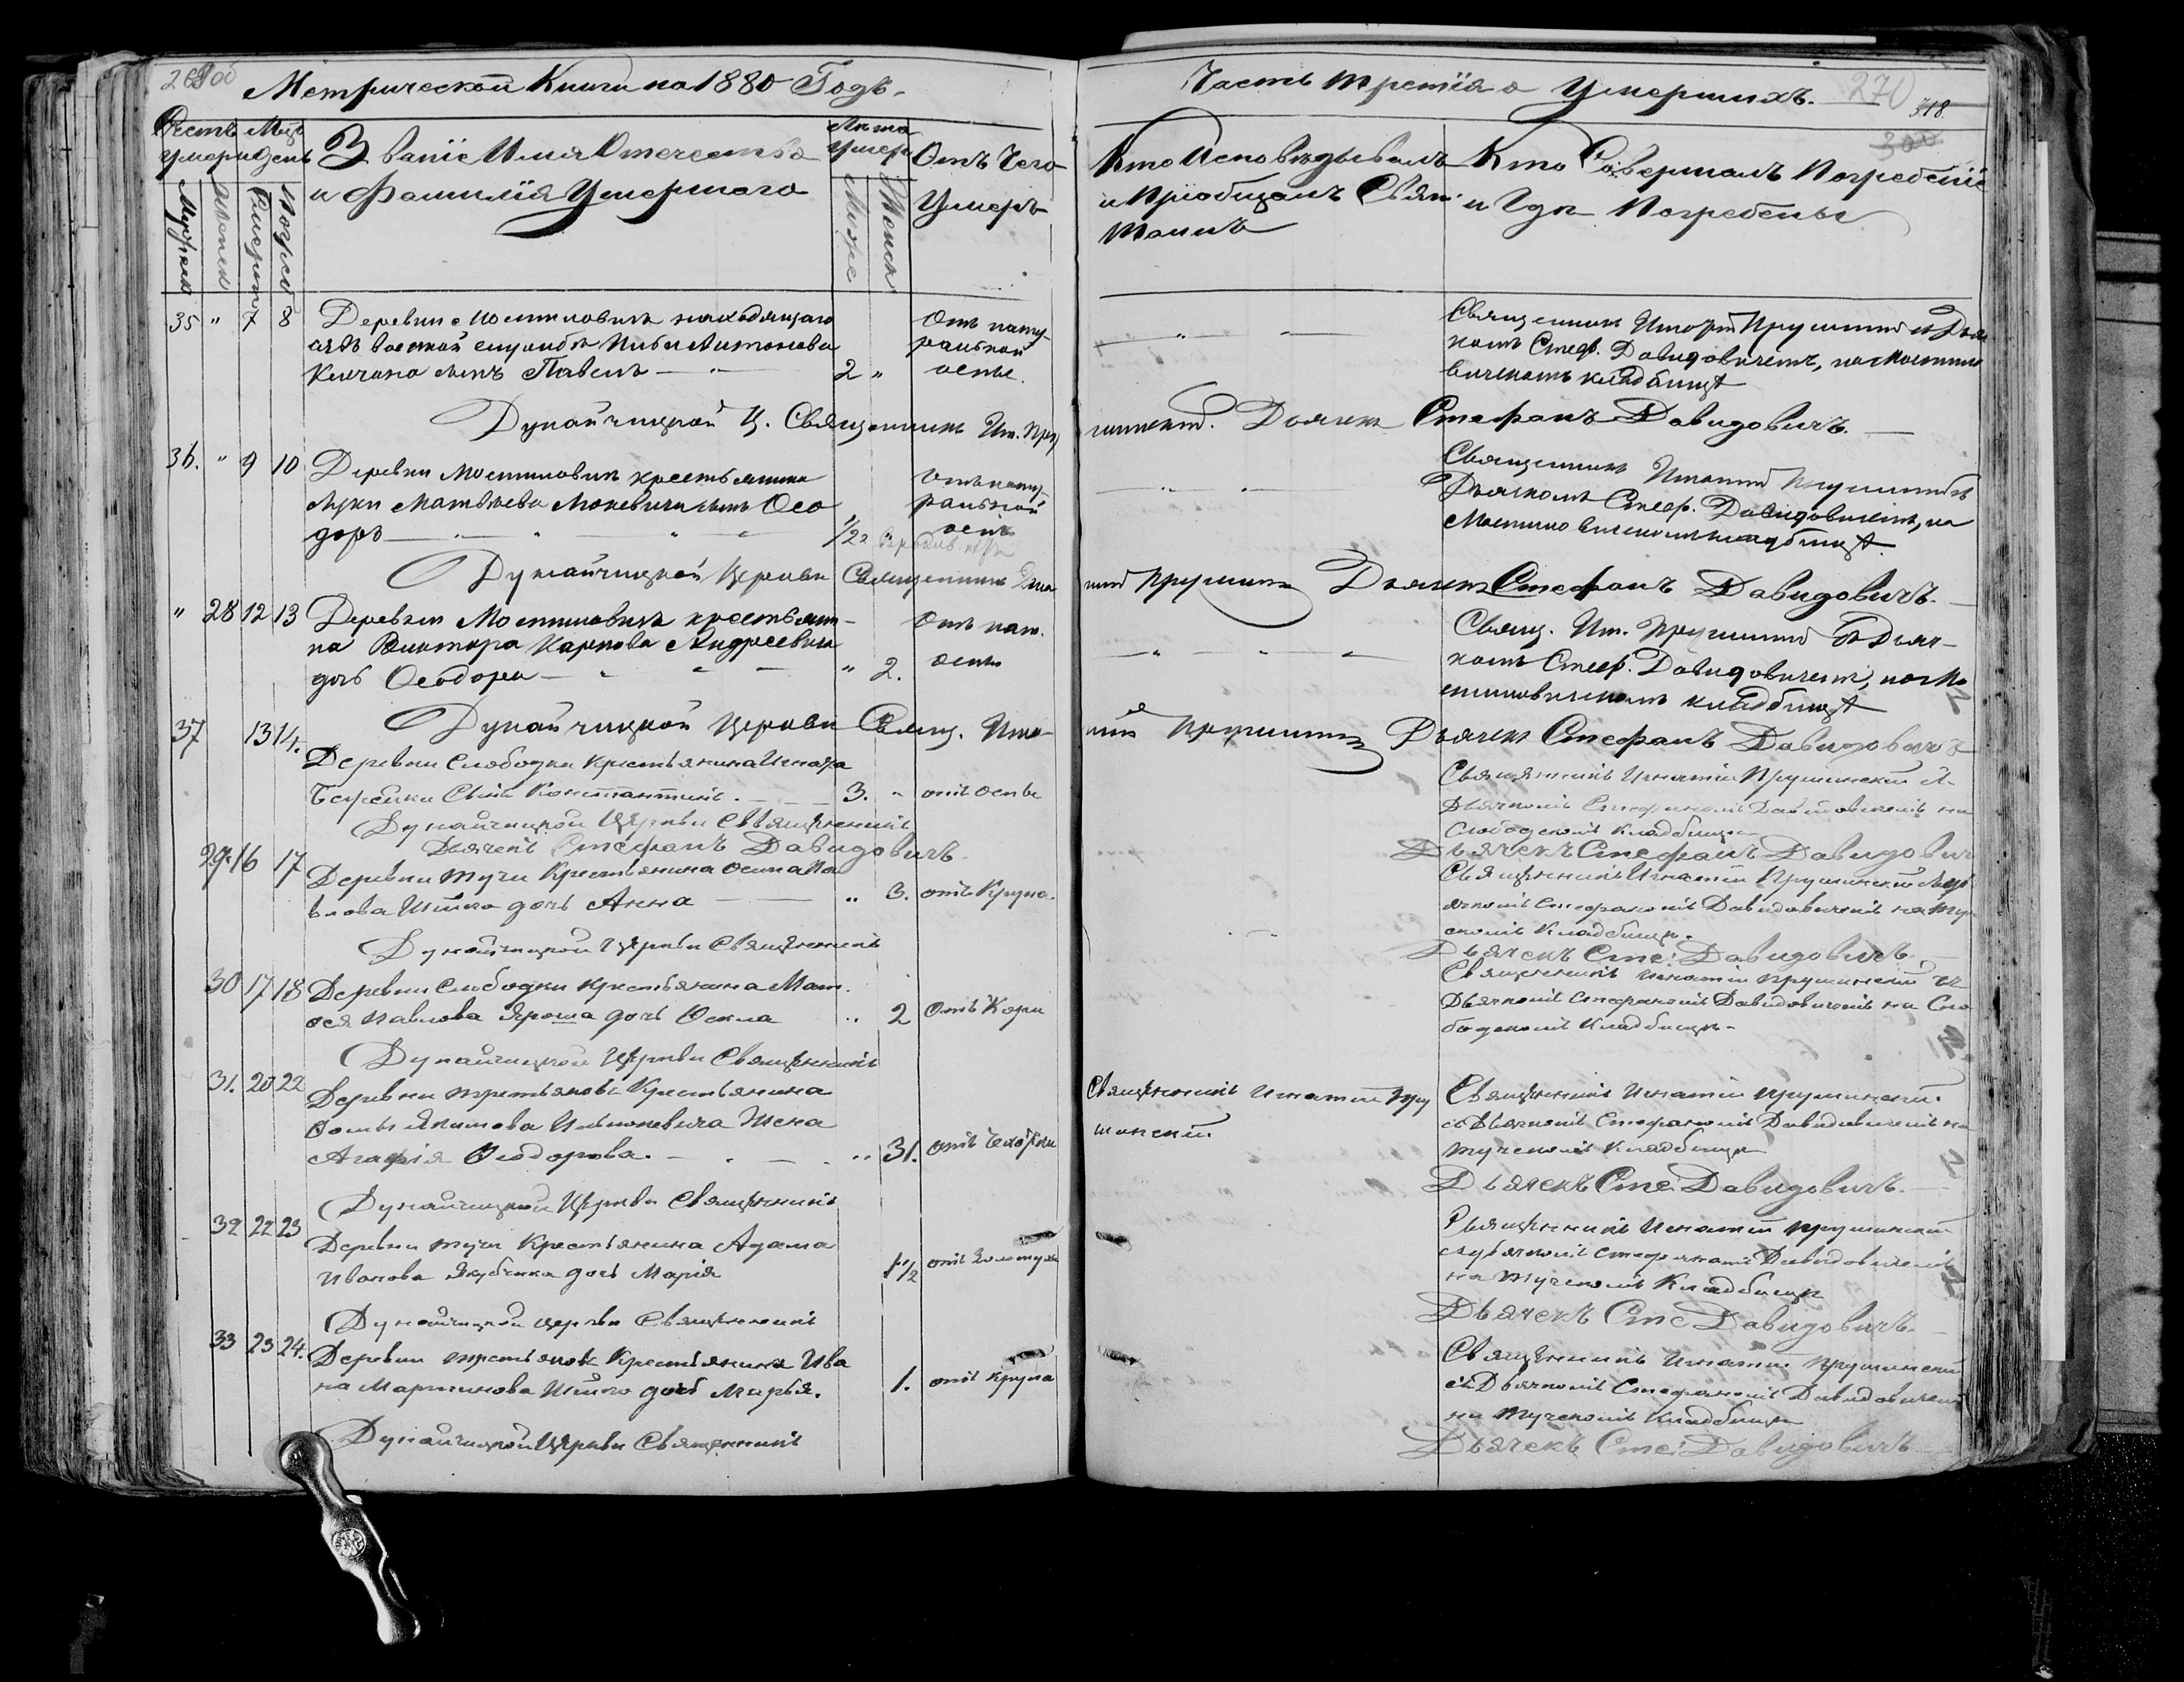 Метрической Книги на 1880 Годъ.
Часть третія о Умершихъ.
270
318.
300
Званіе Имя Отечество
и Фамилія Умершаго
Отъ Чего
Умеръ
Кто Исповѣдывалъ
и Пріобщалъ Свят.
Таинъ
Кто Совершалъ Погребеніе
и Гдѣ Погребены
35 " 7 8 Деревни Мостиловичъ находящаго
ся въ военной службѣ Антонова
сынъ Павелъ 2 "
Отъ нату
ральной
оспы.
Священникъ Прушинскій съ Дьяч
комъ Стеф. Давидовичемъ, на
кладбищѣ
Дунайчицкой Ц. Священникъ Иг. Пру
шинскій. Дьячекъ Стефанъ Давидовичъ.
36. " 9 10 Деревни Мостиловичъ крестьянина
Луки Матвѣева сынъ Ѳео
доръ 1/2
Отъ нату
ральной
оспы
Священникъ Игнатій Прушинскій съ
Дьячкомъ Стеф. Давидовичемъ, на
кладбищѣ.
Дунайчицкой Церкви Священникъ Игна
тій Прушинскій Дьячекъ Стефанъ Давидовичъ.
" 28 12 13 Деревни Мостиловичъ крестьяни-
на Виктора Карпова Андреевича
дочь Ѳеодора " 2.
Отъ нат.
оспы
Свящ. Иг. Прушинскій съ Дьяч-
комъ Стеф. Давидовичемъ, на Мо
стиловичскомъ кладбищѣ
Дунайчицкой Церкви Свящ. Игна-
тій Прушинскій Дьячекъ Стефанъ Давидовичъ
37 13 14.
Деревни Слободки Крестьянина Игната
Сынъ Константинъ. 3. " отъ оспы
Священникъ Игнатій Прушинскій съ
Дьячкомъ Стефаномъ Давидовичемъ на
Слободскомъ Кладбищѣ
Дунайчицкой Церкви Священникъ
Дьячекъ Стефанъ Давидовичъ.
Дьячекъ Стефанъ Давидович
29. 16 17 Деревни Тучи Крестьянина Остапа
дочь Анна " 3. отъ Крупа.
Священникъ Игнатій Прушинскій съ Дь
ячкомъ Стефаномъ Давидовичемъ на Туч
скомъ Кладбищѣ.
Дунайчицкой Церкви Священникъ
Дьячекъ Сте: Давидовичъ
30 17 18 Деревни Слободки Крестьянина Мат.
ѳея Павлова Яроша дочь Ѳекла " 2 Отъ Кори
Священникъ Игнатій Прушинскій съ
Дьячкомъ Стефаномъ Давидовичемъ на Сло
бодскомъ Кладбищѣ.
Дунайчицкой Церкви Священникъ
31. 20 22
Деревни Третьяковъ Крестьянина
Ѳомы Якимова жена
Агафія Ѳеодорова. " 31. отъ Чахотки
Священникъ Игнатій Пру
шинскій
Священникъ Игнатій Прушинскій.
съ Дьячкомъ Стефаномъ Давидовичемъ на
Тучскомъ Кладбищѣ
Дунайчицкой Церкви Священникъ
Дьячекъ Сте: Давидовичъ.
32 22 23
Деревни Тучи Крестьянина Адама
Иванова Якубчика дочь Марія 1 1/2 отъ
Священникъ Игнатій Прушинскій
съ Дьячкомъ Стефаномъ Давидовичемъ
на Тучскомъ Кладбищѣ
Дунайчицкой Церкви Священникъ
Дьячекъ Сте Давидовичъ.
33 23 24. Деревни Третьяковъ Крестьянина Ива
на Мартинова дочь Марья. 1. отъ крупа
Священникъ Игнатій Прушинскій
съ Дьячкомъ Стефаномъ Давидовичемъ
на Тучскомъ Кладбищѣ
Дунайчицкой Церкви Священникъ
Дьячекъ Сте: Давидовичъ